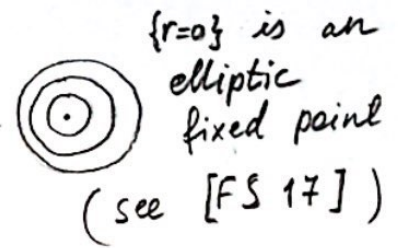 {r=0} is an
elliptic
fixed point
(see [FS 17])